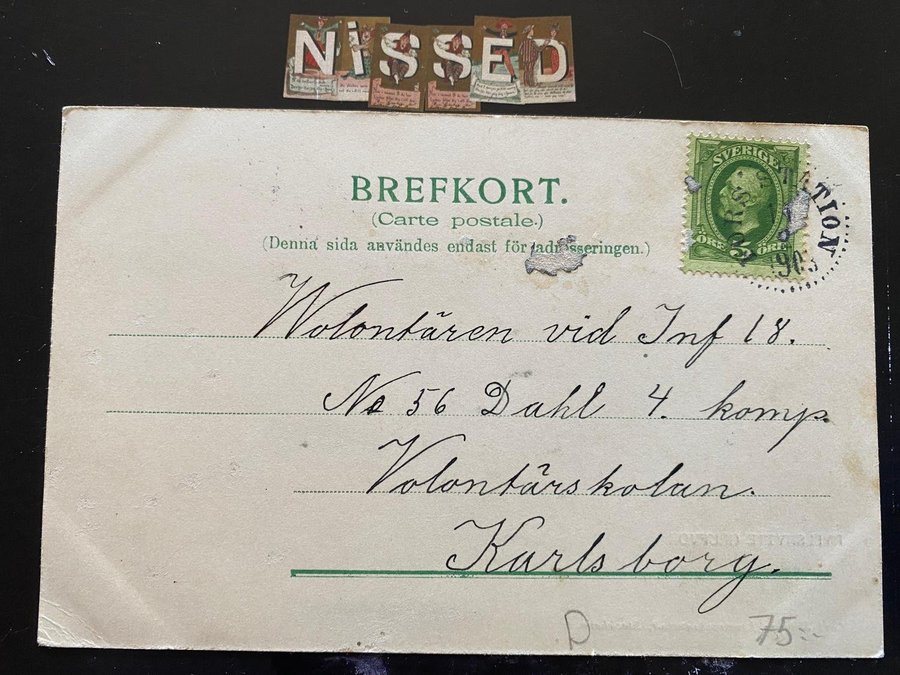 NiSSED
BREFKORT.
(Carte postale.)
(Denna sida användes endast för adresseringen.)
SVERIGE
5
ÖRE ÖRE
STATION
Wolontären vid Inf 18.
No 56 Dahl 4. komp.
Volontärskolan.
Karlsborg.
D 75:-